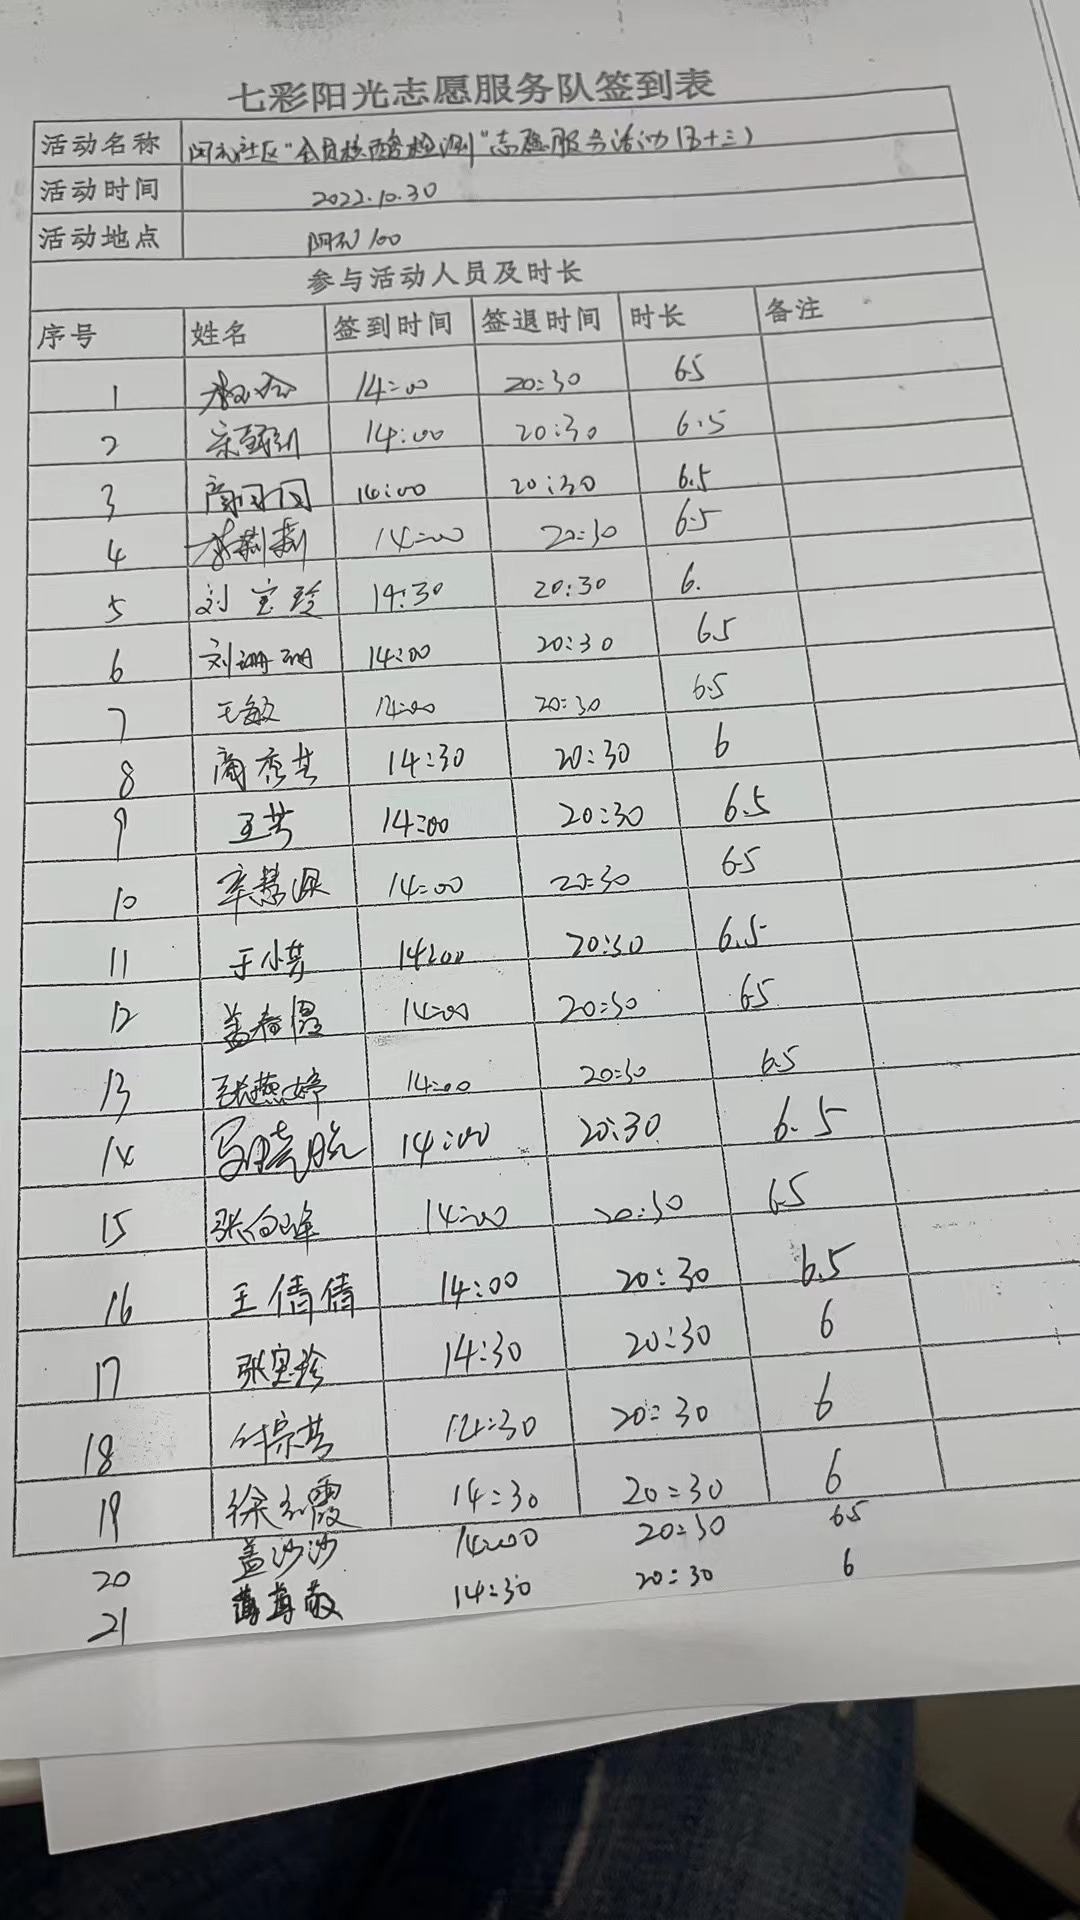 七彩阳光志愿服务队签到表
活动名称 社区"全员核酸检测"志愿服务活动(五十三)
活动时间 2022.10.30
活动地点 阿 100
参与活动人员及时长
序号 姓名 签到时间 签退时间 时长 备注
1 14:00 20:30 6.5
2 宋 14:00 20:30 6.5
3 14:00 20:30 6.5
4 李莉莉 14:00 20:30 6.5
5 刘宝玲 14:30 20:30 6.
6 刘珊珊 14:00 20:30 6.5
7 王敏 14:00 20:30 6.5
8 商秀芸 14:30 20:30 6
9 王芳 14:00 20:30 6.5
10 辛慧 14:00 20:30 6.5
11 于小芳 14:00 20:30 6.5
12 盖春霞 14:00 20:30 6.5
13 张燕婷 14:00 20:30 6.5
14 马晓 14:00 20:30 6.5
15 张 14:00 20:30 6.5
16 王倩倩 14:00 20:30 6.5
17 张宝珍 14:30 20:30 6
18 付宗芳 14:30 20:30 6
19 徐 霞 14:30 20:30 6
20 盖沙沙 14:00 20:30 6.5
21 14:30 20:30 6